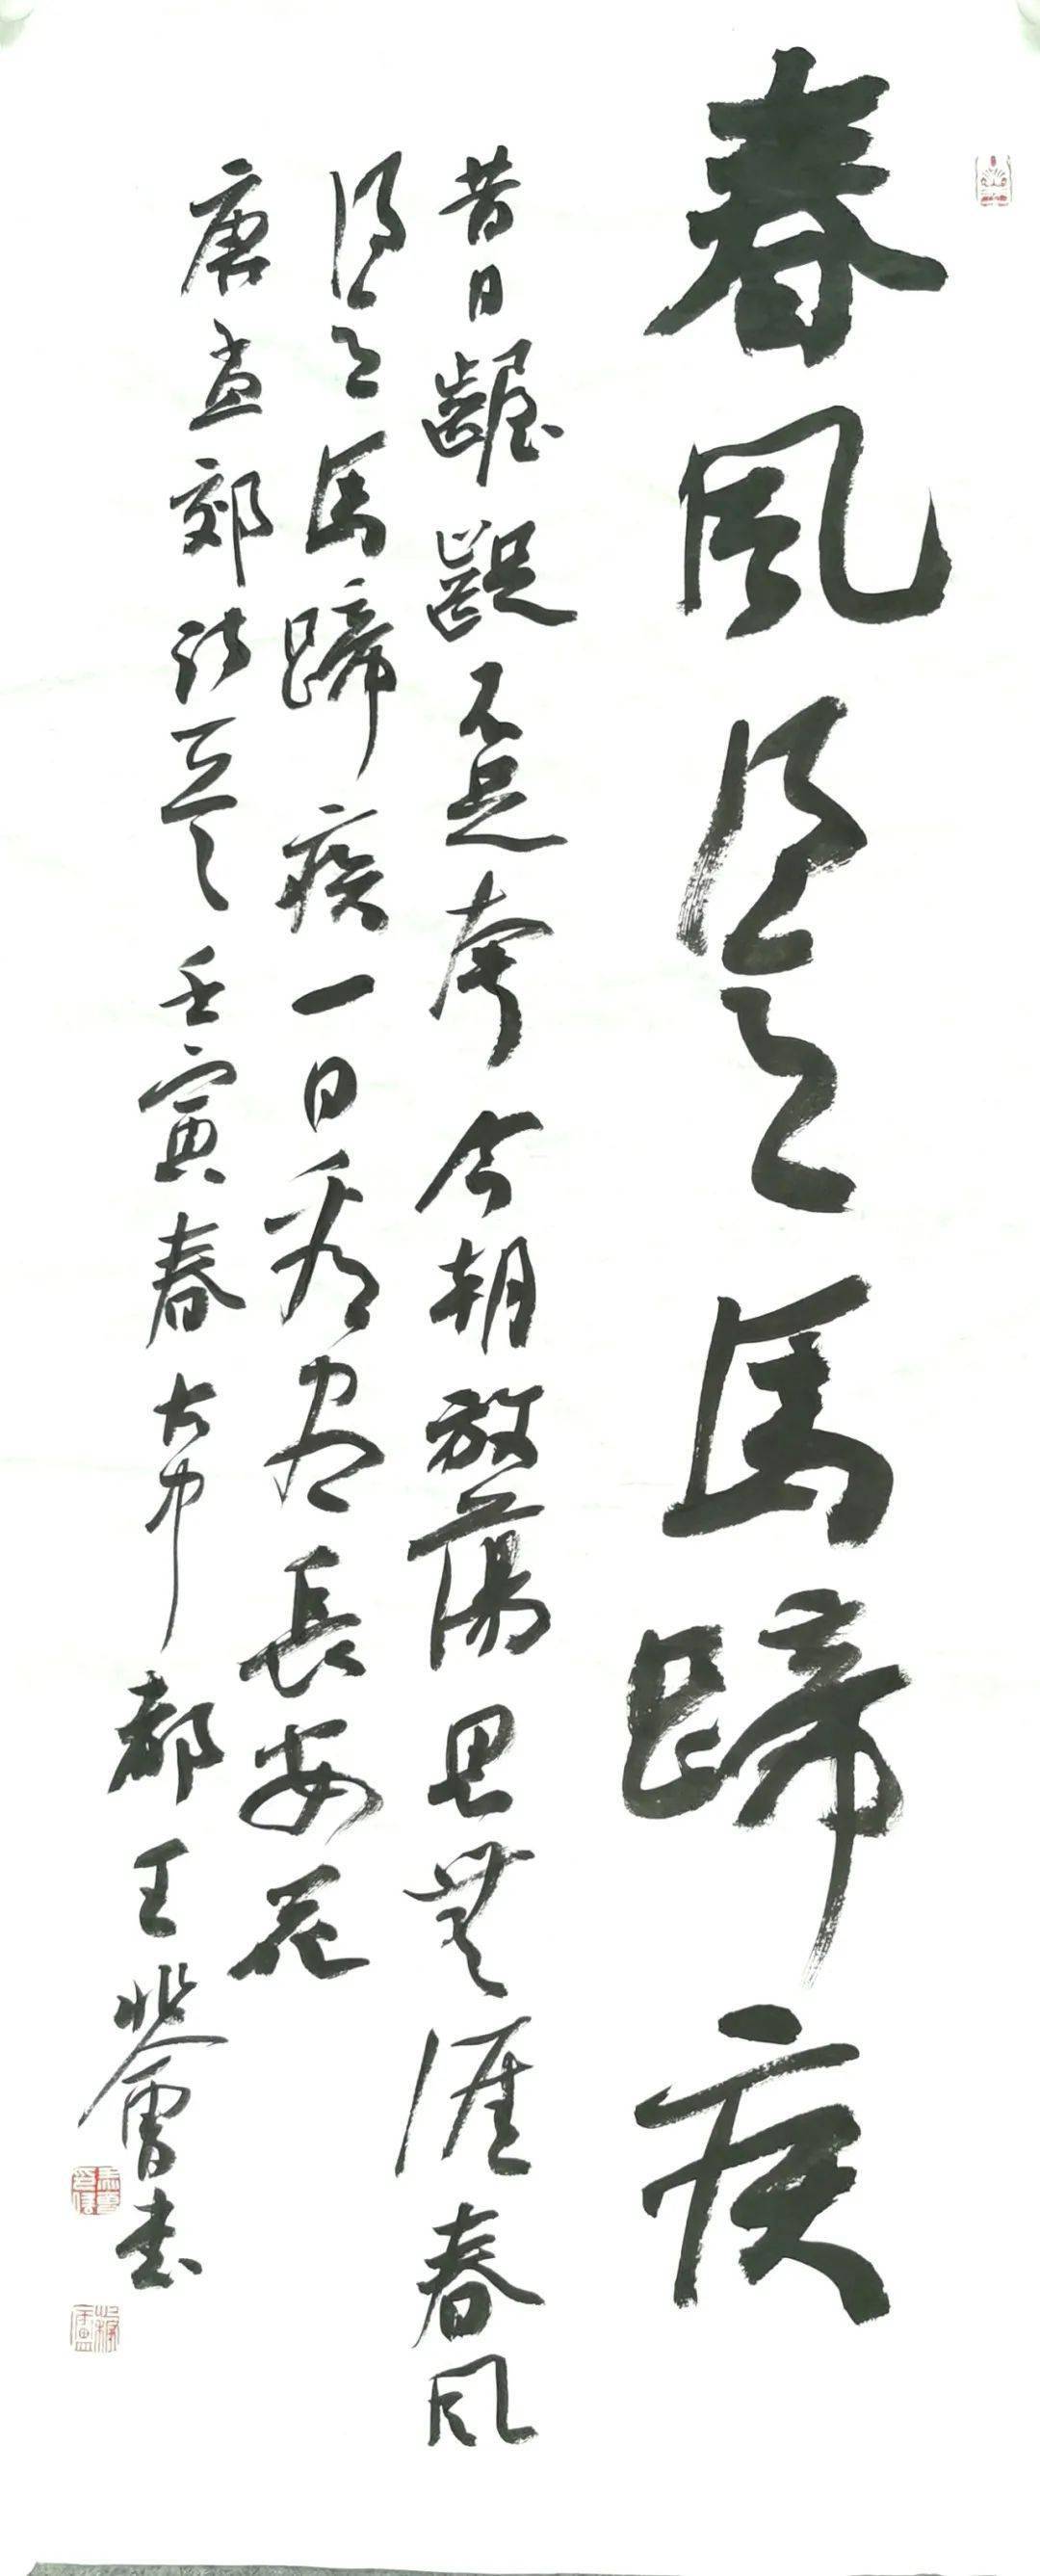 春風得意馬蹄疾
昔日齷齪不足夸今朝放蕩思無涯春風
得意馬蹄疾一日看盡長安花
唐孟郊詩意壬寅春古中都王學書